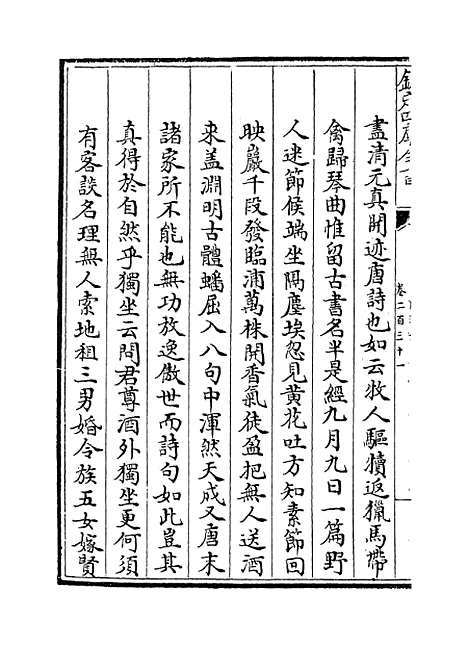 盡清元真開迹唐詩也如云牧人驅犢返獵馬帶
禽歸琴曲惟留古書名半是經九月九日一篇野
人迷節候端坐隔塵埃忽見黃花吐方知素節回
映巖千段發臨浦萬株開香氣徒盈把無人送酒
來蓋淵明古體蟠屈入八句中渾然天成又唐末
諸家所不能也無功放逸傲世而詩句如此豈其
真得於自然乎獨坐云問君尊酒外獨坐更何須
有客談名理無人索地租三男婚令族五女嫁賢